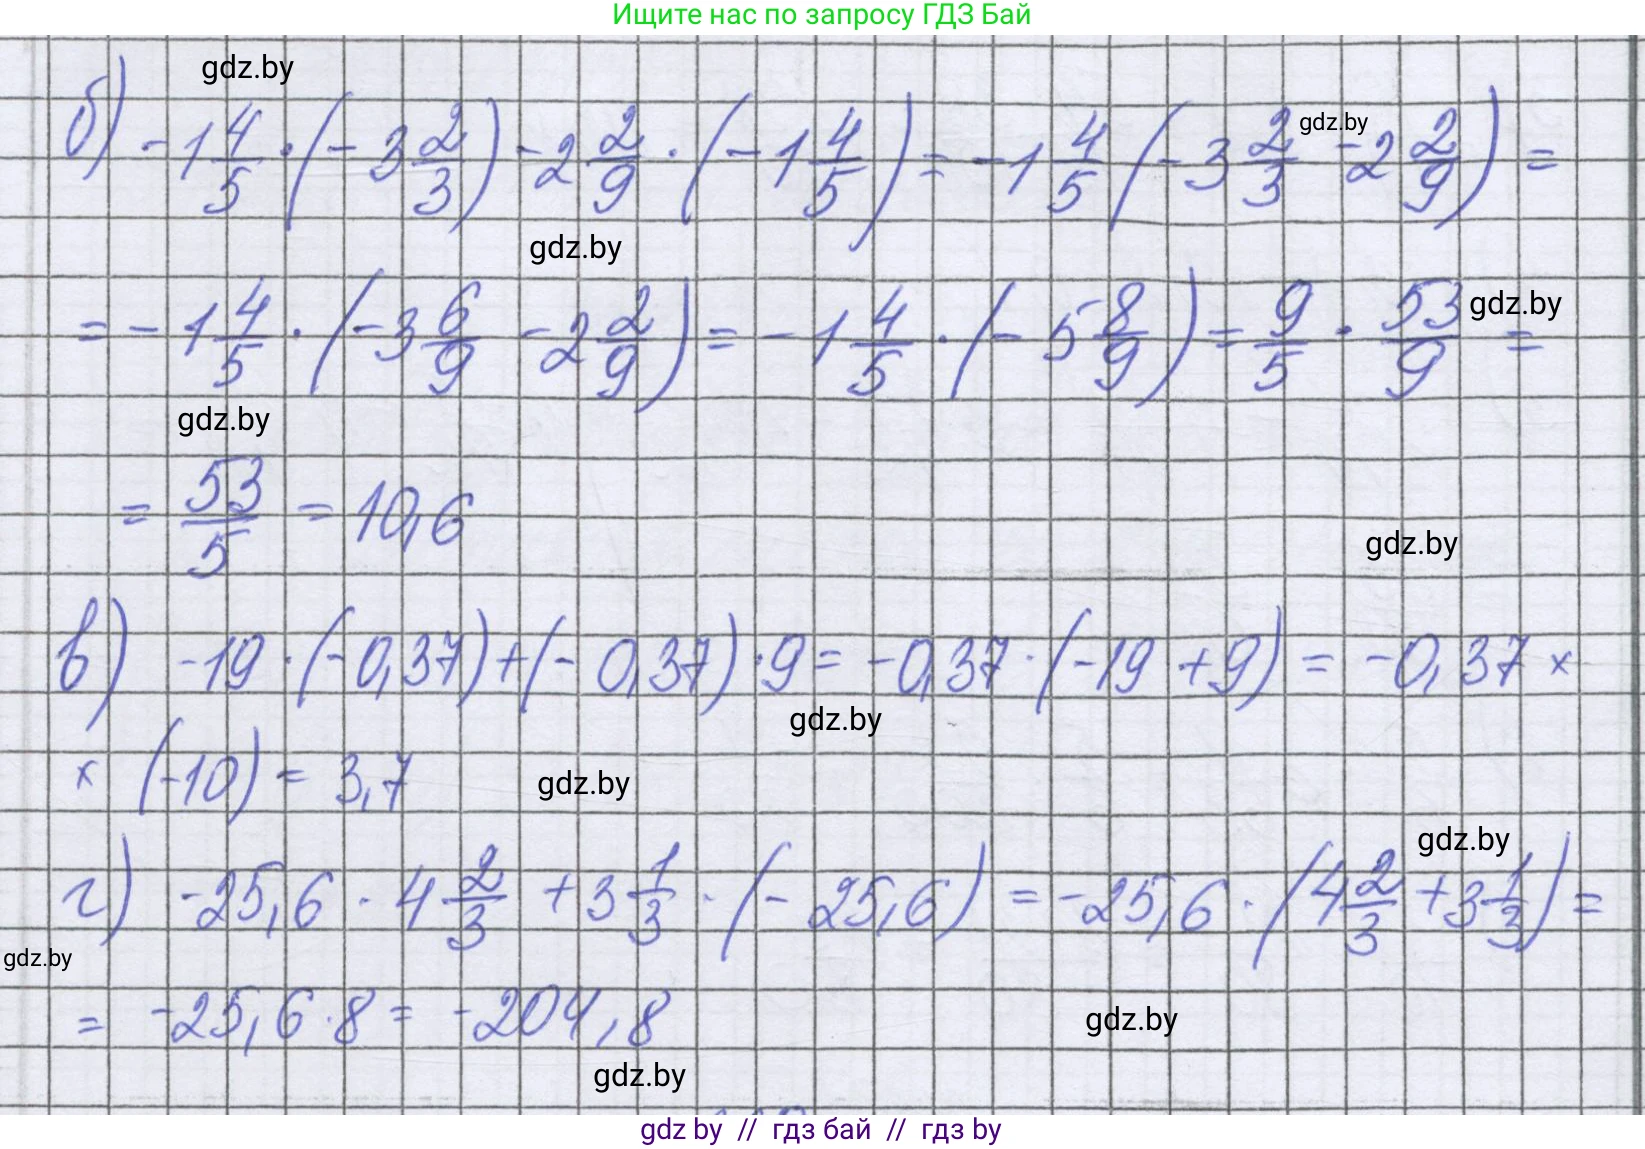 Ищите нас по запросу ГДЗ Бай
gdz.by
б) -1 4/5 · (-3 2/3) - 2 2/9 · (-1 4/5) = -1 4/5 (-3 2/3 - 2 2/9) =
gdz.by
gdz.by
= -1 4/5 · (-3 6/9 - 2 2/9) = -1 4/5 · (-5 8/9) = 9/5 · 53/9 =
gdz.by
gdz.by
= 53/5 = 10,6
gdz.by
в) -19 · (-0,37) + (-0,37) · 9 = -0,37 · (-19 + 9) = -0,37 ×
gdz.by
× (-10) = 3,7
gdz.by
gdz.by
г) -25,6 · 4 2/3 + 3 1/3 · (-25,6) = -25,6 · (4 2/3 + 3 1/3) =
gdz.by
= -25,6 · 8 = -204,8
gdz.by
gdz.by
gdz by // гдз бай // гдз by